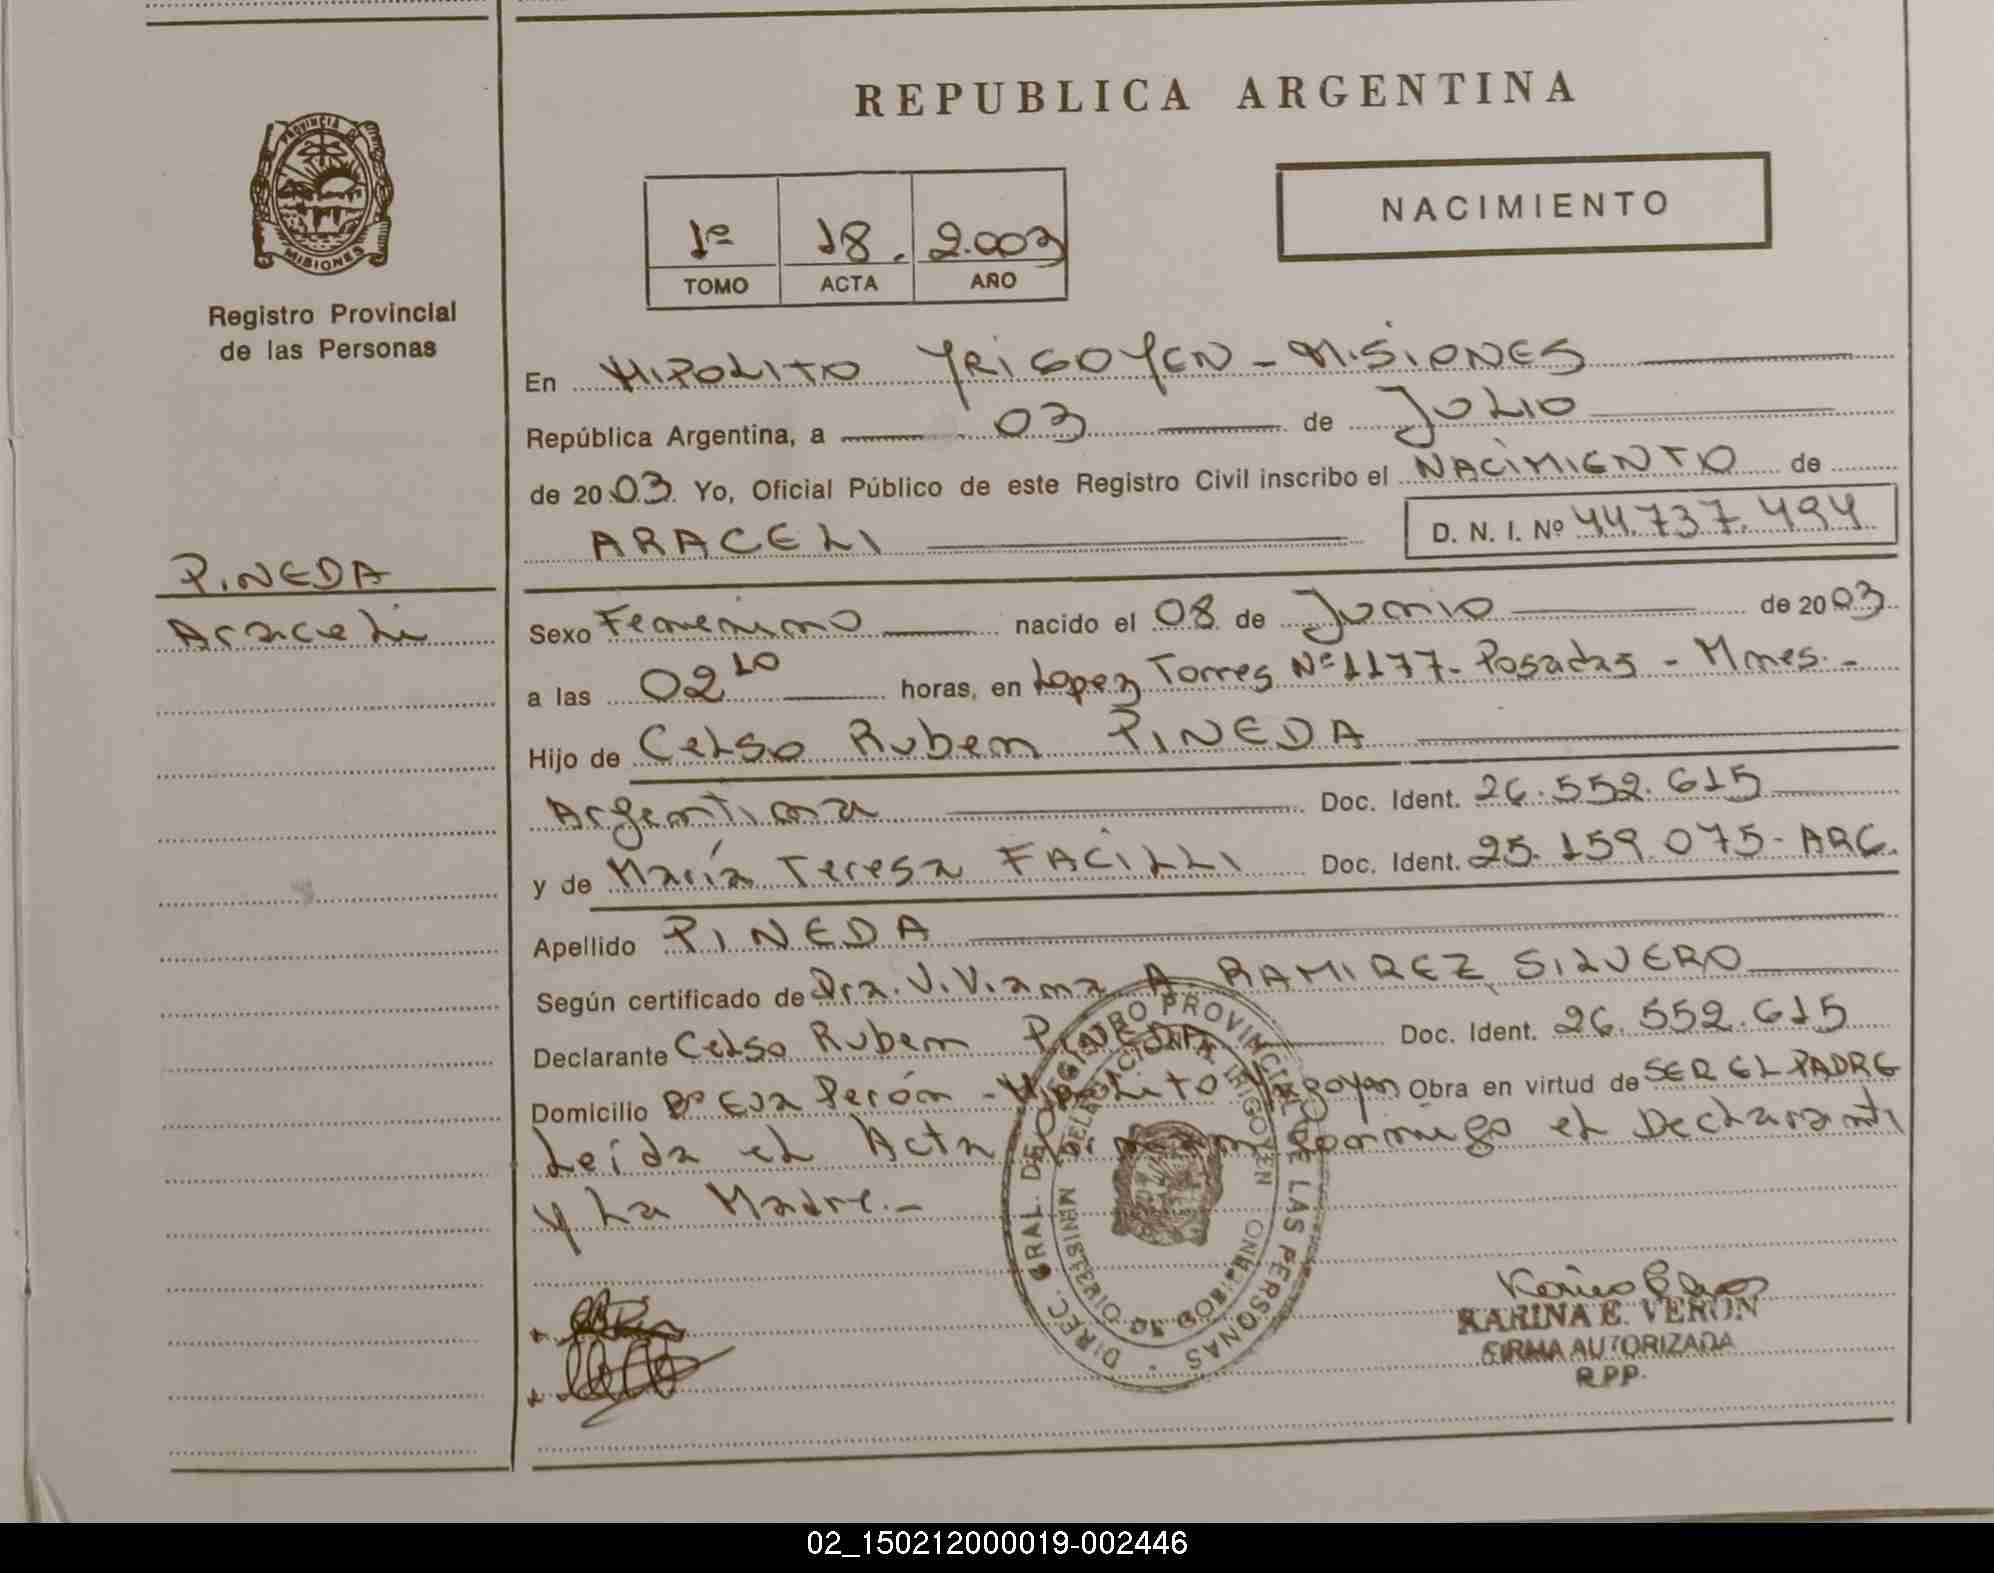 REPUBLICA ARGENTINA
PROVINCIA DE MISIONES
Registro Provincial
de las Personas
1º 18. 2.003
TOMO ACTA AÑO
NACIMIENTO
En HIPOLITO YRIGOYEN - MISIONES
República Argentina, a 03 de JULIO
de 2003. Yo, Oficial Público de este Registro Civil inscribo el NACIMIENTO de
ARACELI D. N. I. Nº 44.737.494
PINEDA
Araceli
Sexo Femenino nacido el 08 de Junio de 2003
a las 02 10 horas, en Lopez Torres Nº 1177 - Posadas - Mnes. -
Hijo de Celso Ruben PINEDA
Argentina Doc. Ident. 26.552.615
y de María Teresa FACILLI Doc. Ident. 25.159.075 - ARG.
Apellido PINEDA
Según certificado de Dra. Viviana A RAMIREZ SILVERO
Declarante Celso Ruben PINEDA Doc. Ident. 26.552.615
Domicilio Bº Eva Perón - Hipolito Yrigoyen Obra en virtud de SER EL PADRE
Leída el Acta firman conmigo el Declarante
y La Madre. -
DIREC. GRAL. DE REGISTRO PROVINCIAL DE LAS PERSONAS
MINISTERIO DE GOBIERNO
KARINA E. VERON
FIRMA AUTORIZADA
R.P.P.
02_150212000019-002446